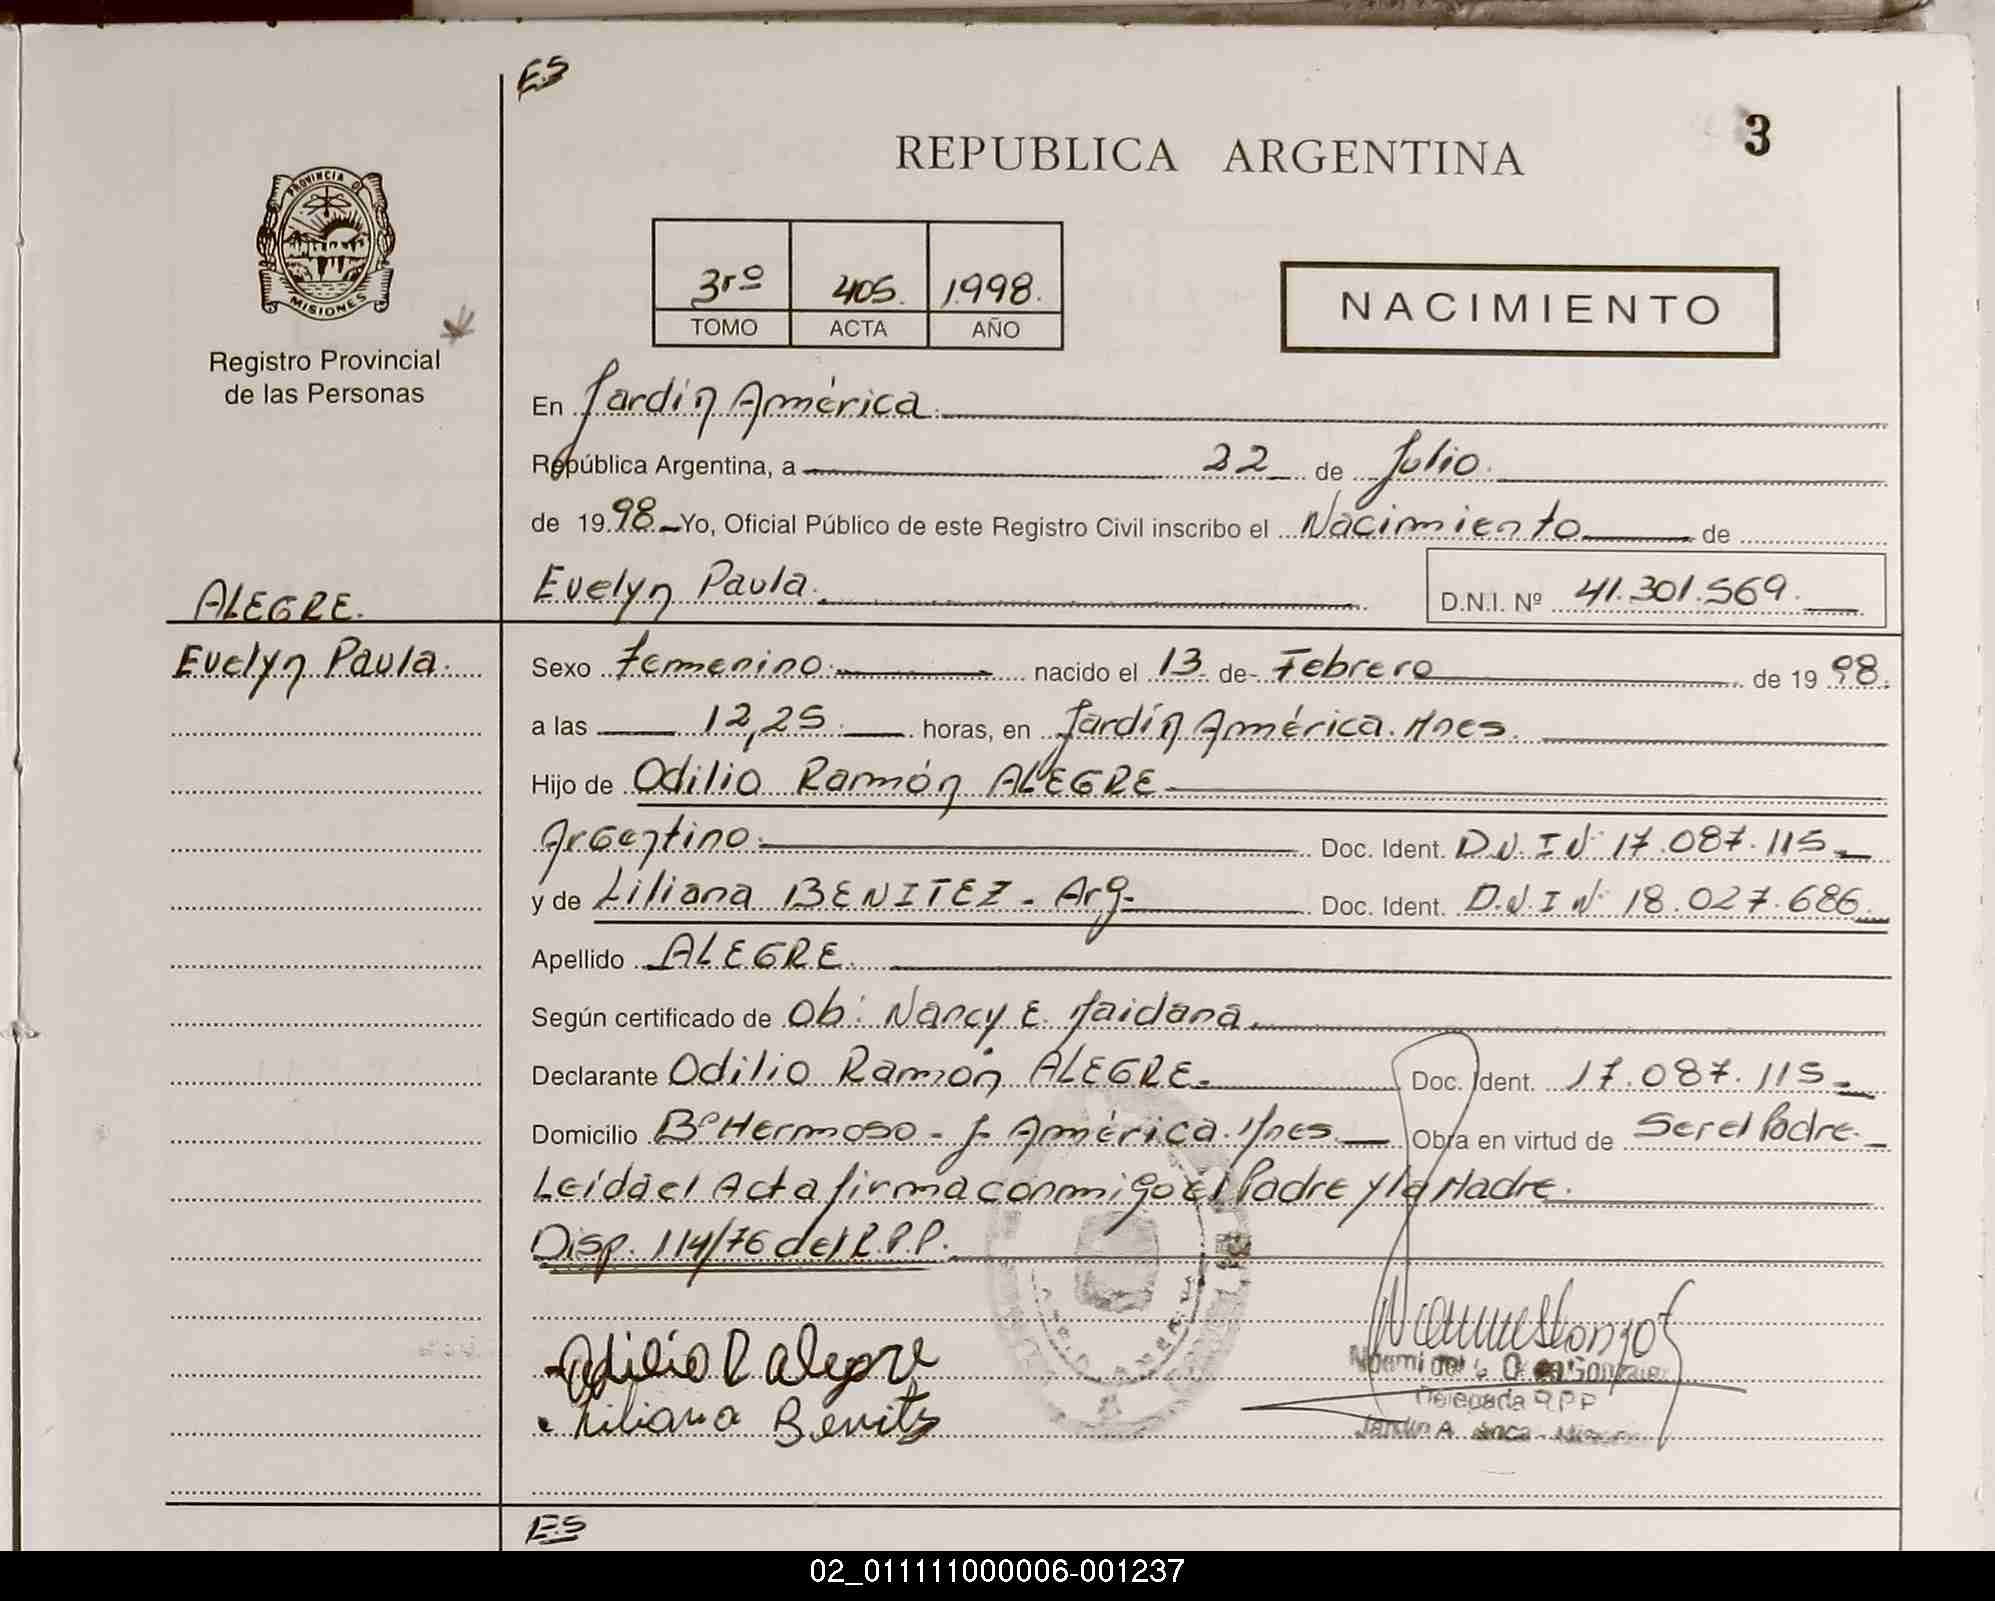 E.S
3
REPUBLICA ARGENTINA
PROVINCIA DE
MISIONES
Registro Provincial
de las Personas
3rº 405. 1.998.
TOMO ACTA AÑO
NACIMIENTO
En Jardín América.
República Argentina, a 22 de Julio.
de 19 98 Yo, Oficial Público de este Registro Civil inscribo el Nacimiento de
ALEGRE. Evelyn Paula. D.N.I. Nº 41.301.569.
Evelyn Paula. Sexo Femenino. nacido el 13 de Febrero de 19 98.
a las 12,25. horas, en Jardín América. Mnes.
Hijo de Odilio Ramón ALEGRE
Argentino. Doc. Ident. D.N.I Nº 17.087.115
y de Liliana BENITEZ - Arg. Doc. Ident. D.N.I Nº 18.027.686
Apellido ALEGRE.
Según certificado de Ob: Nancy E. Maidana.
Declarante Odilio Ramón ALEGRE. Doc. Ident. 17.087.115
Domicilio Bº Hermoso - J. América. Mnes Obra en virtud de Ser el Padre.
Leída el Acta firma conmigo el Padre y la Madre.
Disp. 114/76 del R.P.P.
Odilio R Alegre
Liliana Benitz
Noemi Gonzalez
Delegada R.P.P
E.S
02_011111000006-001237